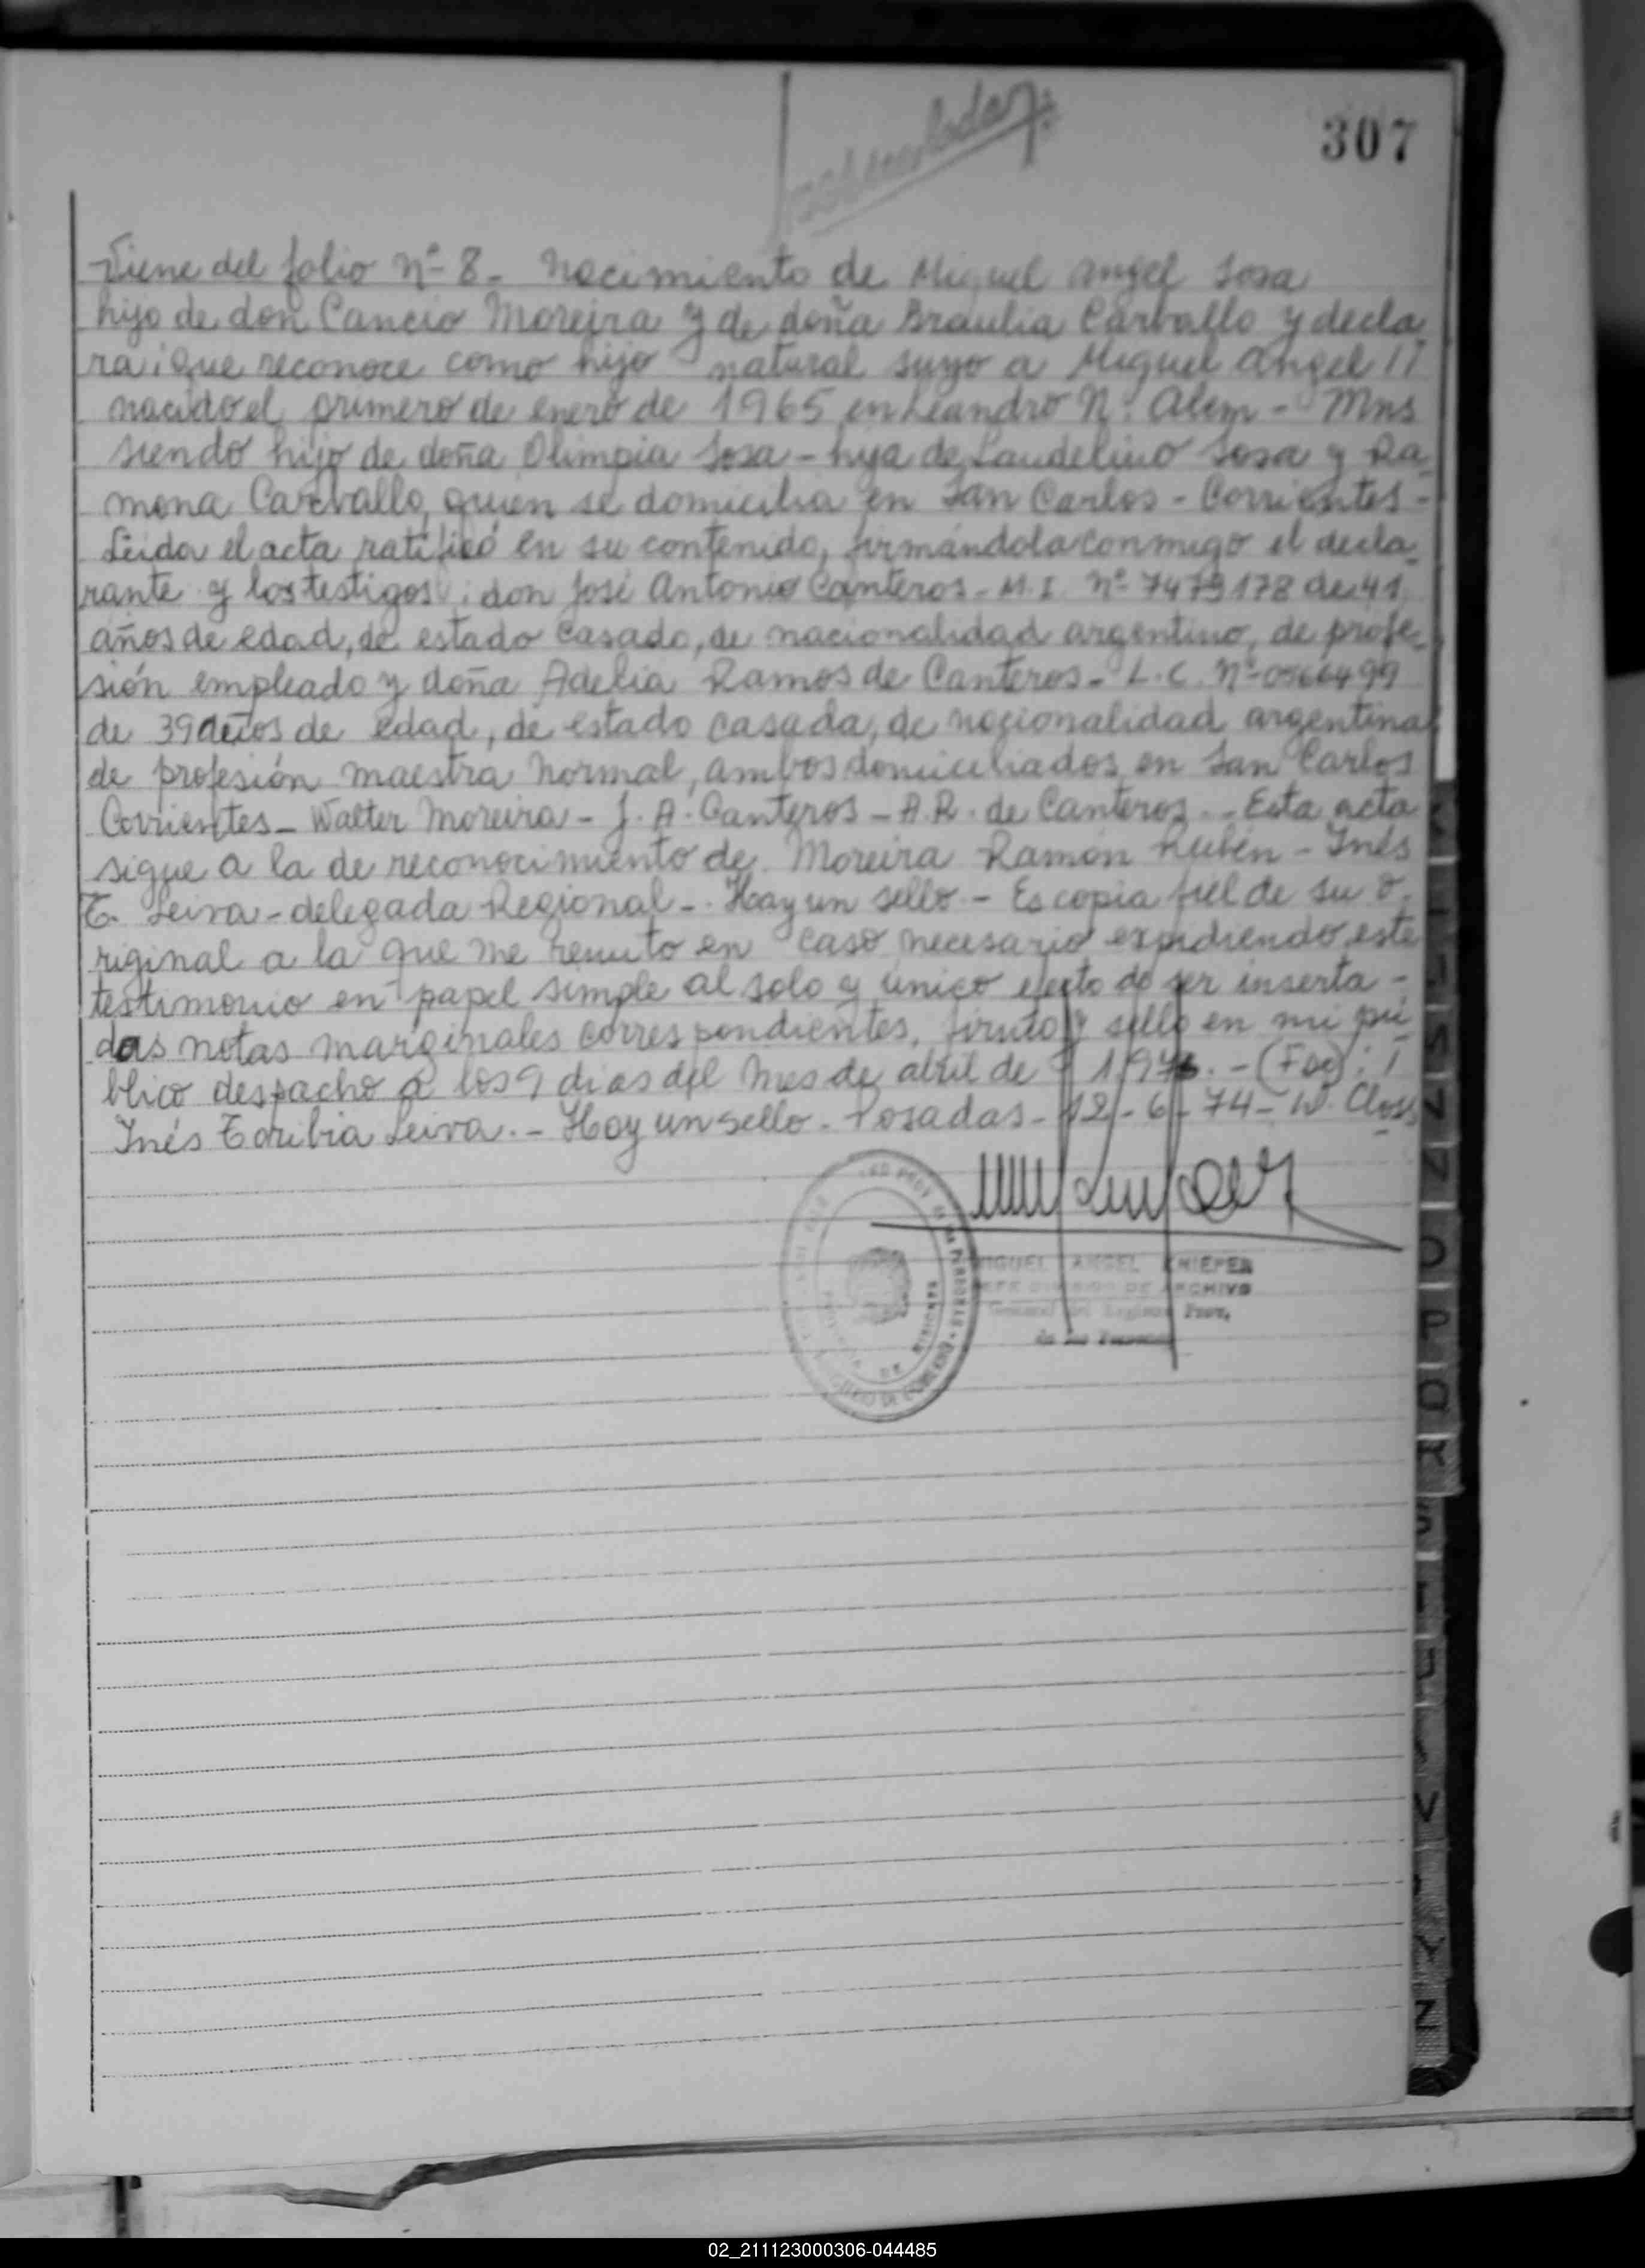 307
Viene del folio Nº 8 - Nacimiento de Miguel Angel Sosa
hijo de don Cancio Moreira y de doña Braulia Carballo y decla
ra: que reconoce como hijo natural suyo a Miguel Angel
nacido el primero de enero de 1965 en Leandro N. Alem - Mns
siendo hijo de doña Olimpia Sosa - hija de Laudelino Sosa y Ra
mona Carvallo, quien se domicilia en San Carlos - Corrientes -
Leida el acta ratificó en su contenido, firmándola conmigo el decla
rante y los testigos: don José Antonio Canteros - M.I. Nº 7479178 de 41
años de edad, de estado casado, de nacionalidad argentino, de profe-
sión empleado y doña Adelia Ramos de Canteros - L.C. Nº
de 39 años de edad, de estado casada, de nacionalidad argentina
de profesión maestra normal, ambos domiciliados en San Carlos
Corrientes - Walter Moreira - J. A. Canteros - A.R. de Canteros - Esta acta
sigue a la de reconocimiento de Moreira Ramón Rubén - Inés
T. Leiva - delegada Regional - Hay un sello - Es copia fiel de su o
riginal a la que me remito en caso necesario expidiendo este
testimonio en papel simple al solo y único efecto de ser inserta -
das notas marginales correspondientes, firmo y sello en mi pú
blico despacho a los 9 dias del mes de abril de
Inés Toribia Leiva. - Hay un sello - Posadas - 12 - 6 - 74 - W. Closs
MIGUEL ANGEL KNIEPER
JEFE DIVISION DE ARCHIVO
General del Registro Prov.
de las Personas
DE MISIONES
02_211123000306-044485